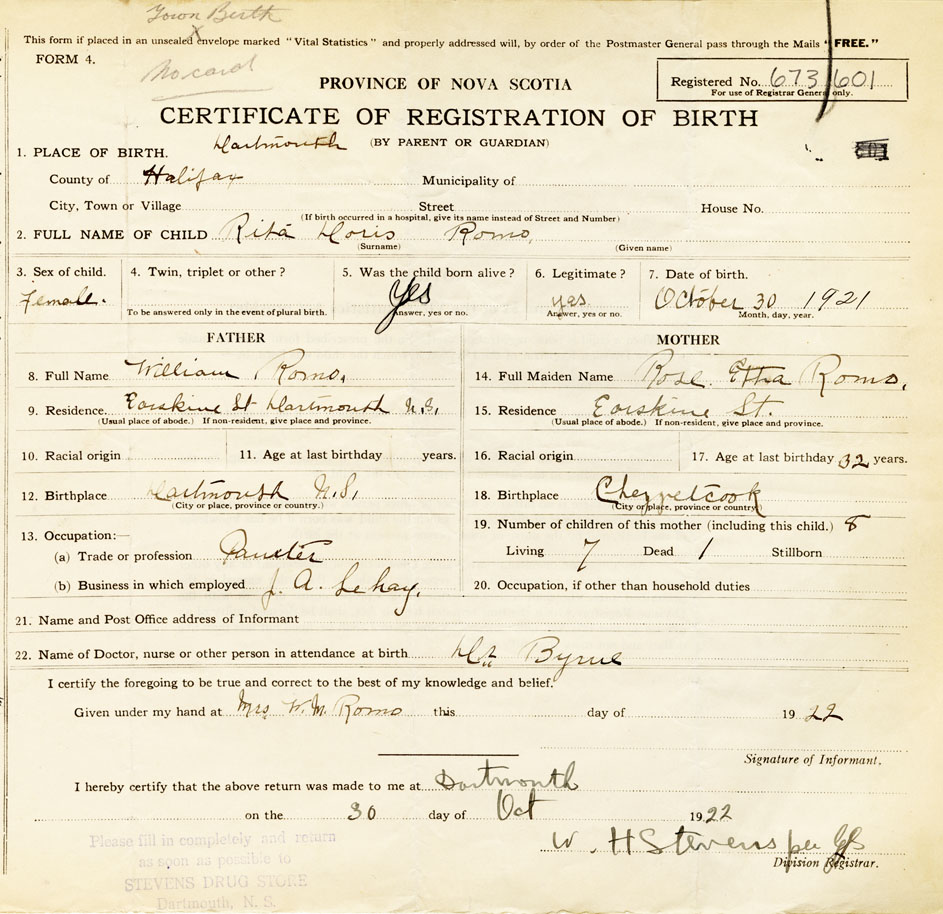 Town Birth
This form if placed in an unsealed envelope marked "Vital Statistics" and properly addressed will, by order of the Postmaster General pass through the Mails "FREE."
FORM 4.
No card
PROVINCE OF NOVA SCOTIA
Registered No. 673 601
For use of Registrar General only.
CERTIFICATE OF REGISTRATION OF BIRTH
(BY PARENT OR GUARDIAN)
1. PLACE OF BIRTH. Dartmouth
County of Halifax Municipality of
City, Town or Village Street House No.
(If birth occurred in a hospital, give its name instead of Street and Number)
2. FULL NAME OF CHILD Rita Doris Romo,
(Surname) (Given name)
3. Sex of child. 4. Twin, triplet or other? 5. Was the child born alive? 6. Legitimate? 7. Date of birth.
Female. Yes yes October 30 1921
To be answered only in the event of plural birth. Answer, yes or no. Answer, yes or no. Month, day, year.
FATHER
8. Full Name William Romo,
9. Residence. Earskine St Dartmouth N.S,
(Usual place of abode.) If non-resident, give place and province.
10. Racial origin 11. Age at last birthday years.
12. Birthplace Dartmouth N.S,
(City or place, province or country.)
13. Occupation:—
(a) Trade or profession
(b) Business in which employed J. A.
MOTHER
14. Full Maiden Name Rose Etha Romo,
15. Residence Earskine St.
(Usual place of abode.) If non-resident, give place and province.
16. Racial origin 17. Age at last birthday 32 years.
18. Birthplace Chezzetcook
(City or place, province or country)
19. Number of children of this mother (including this child.) 8
Living 7 Dead 1 Stillborn
20. Occupation, if other than household duties
21. Name and Post Office address of Informant
22. Name of Doctor, nurse or other person in attendance at birth Dr Byrne
I certify the foregoing to be true and correct to the best of my knowledge and belief.
Given under my hand at Mrs W.M. Romo this day of 1922
Signature of Informant.
I hereby certify that the above return was made to me at Dartmouth
on the 30 day of Oct 1922
W. H Stevens per
Division Registrar.
Please fill in completely and return
as soon as possible to
STEVENS DRUG STORE
Dartmouth, N. S.